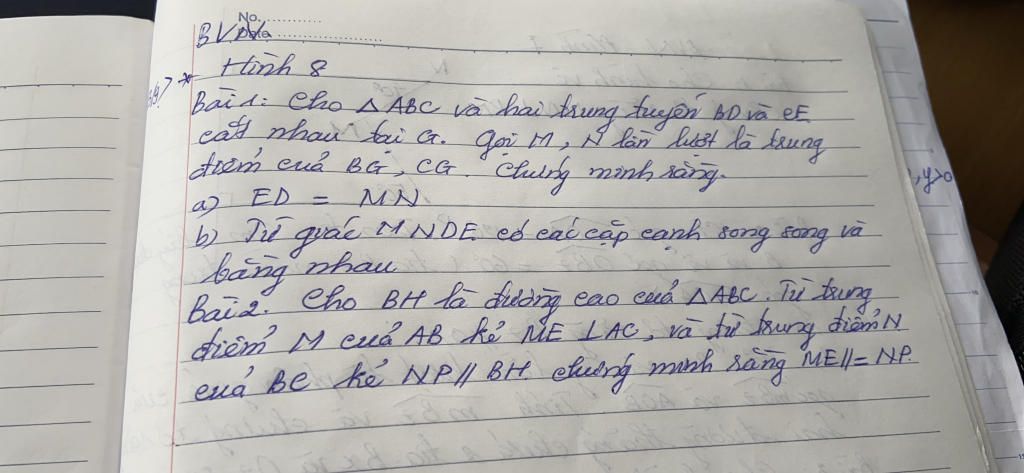 No. ............
Date ........................
BVN
Hình 8
Bài 1: Cho △ABC và hai trung tuyến BD và CE
cắt nhau tại G. Gọi M, N lần lượt là trung
điểm của BG, CG. Chứng minh rằng.
a) ED = MN
b) Tứ giác MNDE có các cặp cạnh song song và
bằng nhau
Bài 2. Cho BH là đường cao của △ABC. Từ trung
điểm M của AB kẻ ME ⊥ AC, và từ trung điểm N
của BC kẻ NP // BH. Chứng minh rằng ME //= NP.
, y>0